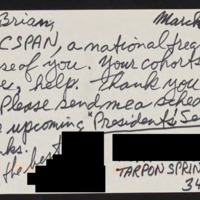 Brian, March
CSPAN, a national trea
se of you. Your cohorts
, help. Thank you
Please send me a sched
e upcoming "Presidents Se
ks.
the best
TARPON SPRIN
34